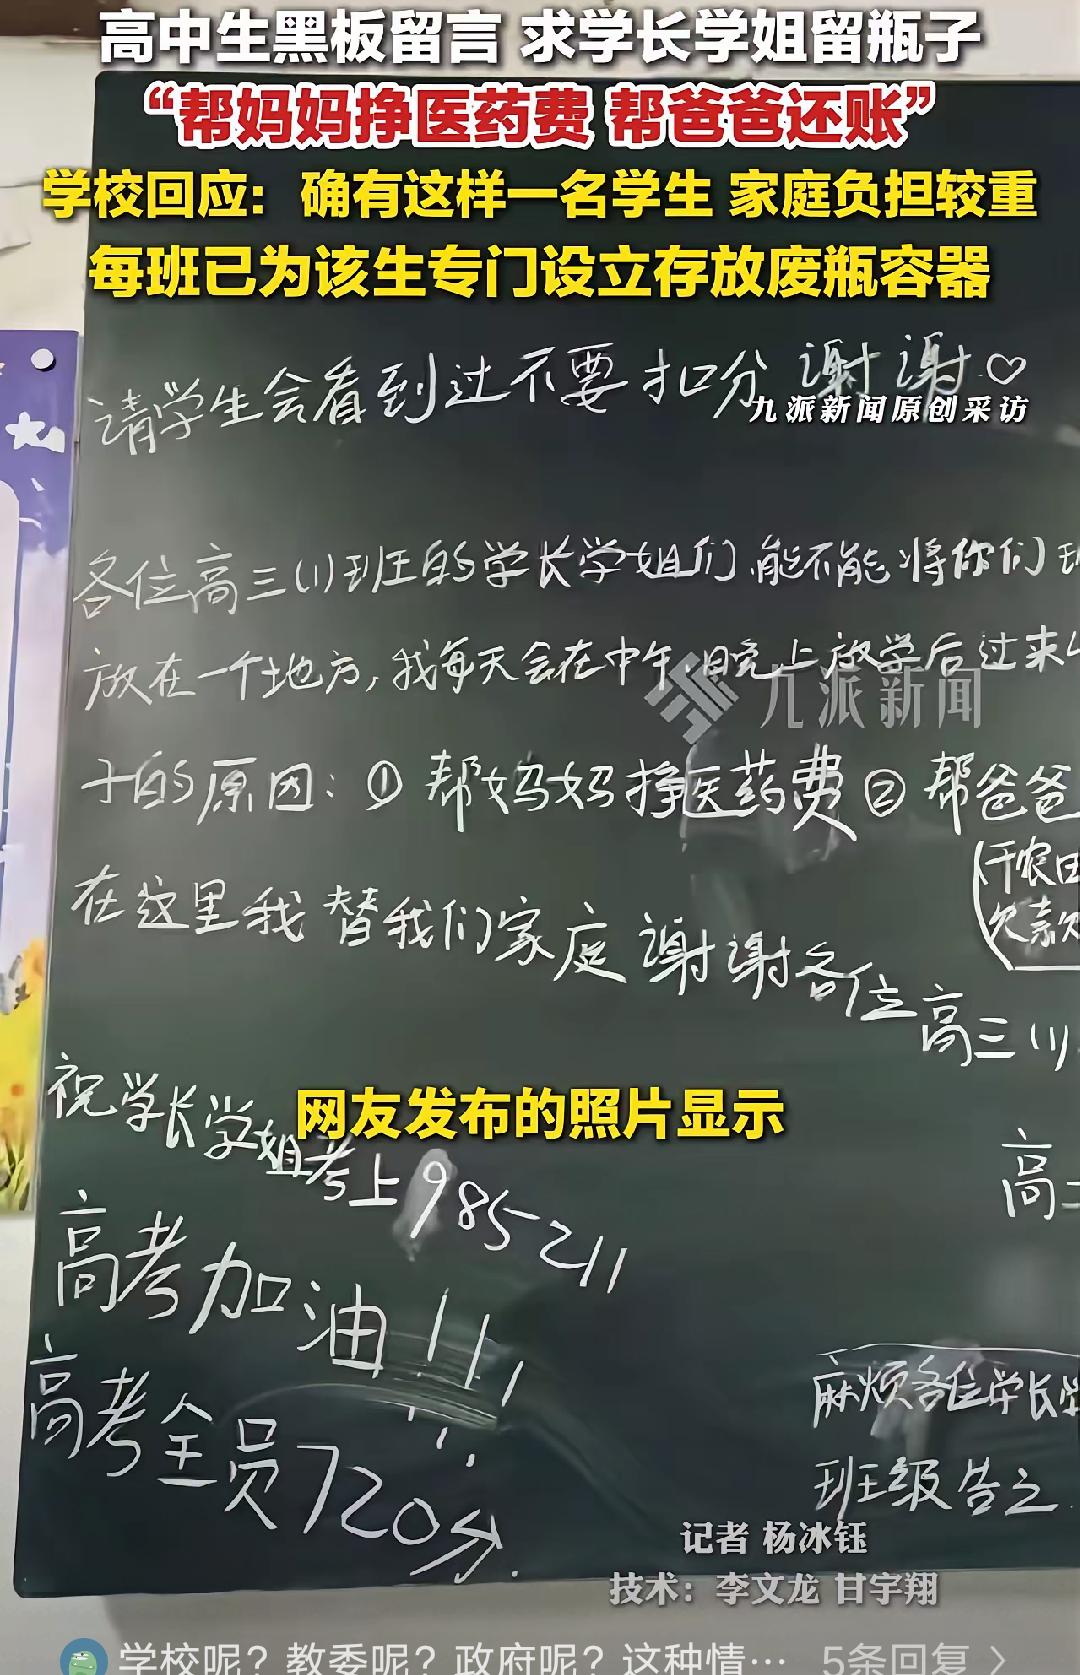 高中生黑板留言 求学长学姐留瓶子
“帮妈妈挣医药费 帮爸爸还账”
学校回应：确有这样一名学生 家庭负担较重
每班已为该生专门设立存放废瓶容器
请学生会看到过不要扣分 谢谢♡
九派新闻原创采访
各位高三(1)班的学长学姐们,能不能将你们
放在一个地方,我每天会在中午、晚上放学后过来
九派新闻
子的原因: ① 帮妈妈挣医药费 ② 帮爸爸
(干农田
欠款
在这里我替我们家庭谢谢各位高三(1)
网友发布的照片显示
祝学长学姐考上985 211
高考加油!!!
高考全员720分.
高二
麻烦各位学长
班级告之
记者 杨冰钰
技术：李文龙 甘宇翔
学校呢？教委呢？政府呢？这种情… 5条回复 >